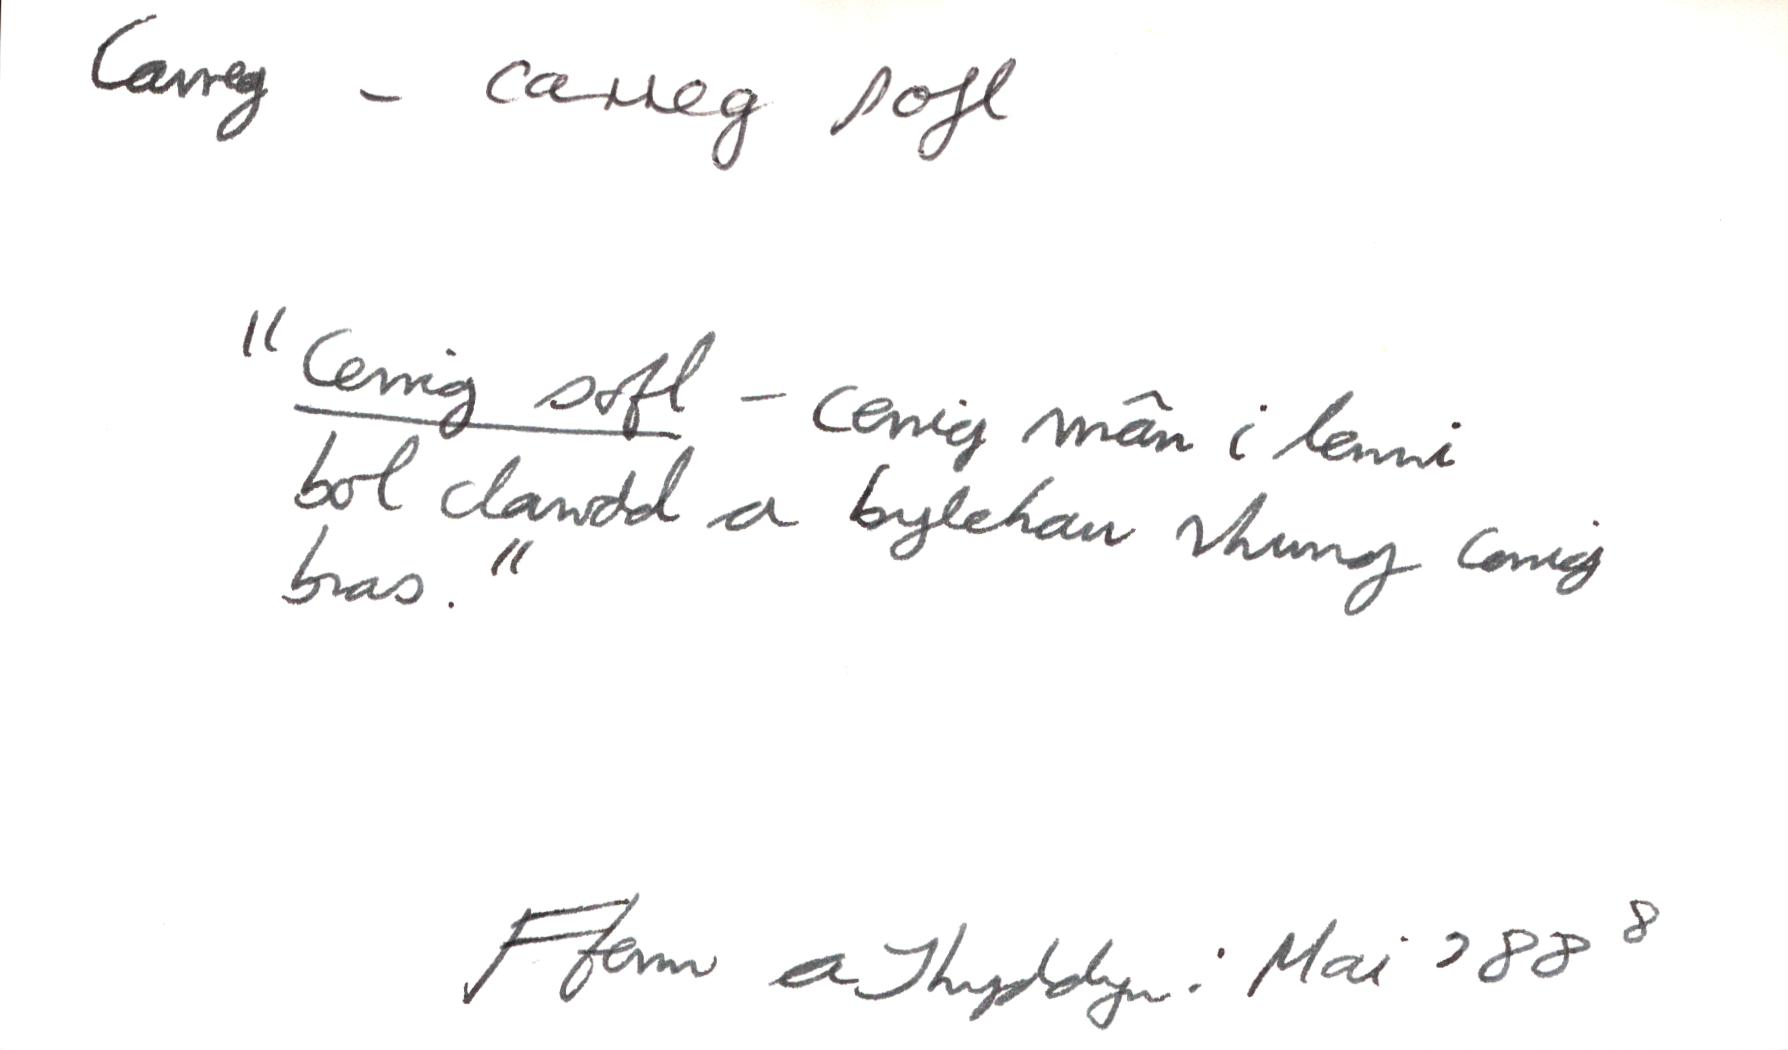 Carreg - carreg sofl
"Cerrig sofl - cerrig mân i lenwi
bol clawdd a bylchau rhwng cerrig
bras."
Fferm a Thyddyn: Mai '88 8